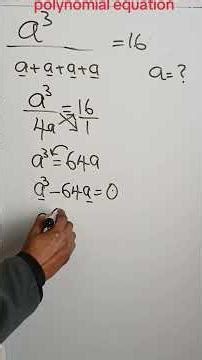 polynomial equation
a³ = 16
a+a+a+a
a = ?
a³ = 16
4a 1
a³ = 64a
a³ - 64a = 0